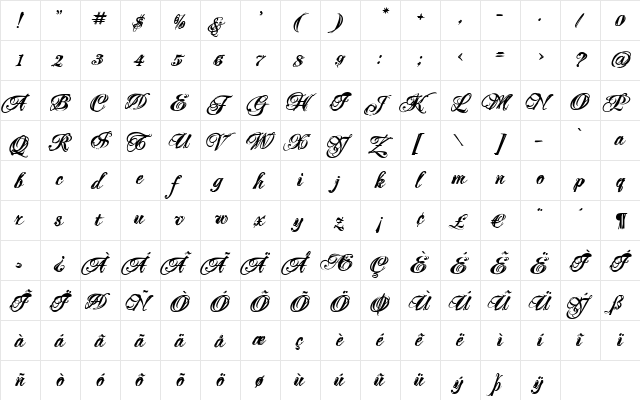 ! " # $ % & ' ( ) * + , - . / 0
1 2 3 4 5 6 7 8 9 : ; < = > ? @
A B C D E F G H I J K L M N O P
Q R S T U V W X Y Z [ \ ] - ` a
b c d e f g h i j k l m n o p q
r s t u v w x y z ¡ ¢ £ € ¨ ´ ¶
¸ ¿ À Á Â Ã Ä Å Æ Ç È É Ê Ë Ì Í
Î Ï Ð Ñ Ò Ó Ô Õ Ö Ø Ù Ú Û Ü Ý ß
à á â ã ä å æ ç è é ê ë ì í î ï
ñ ò ó ô õ ö ø ù ú û ü ý þ ÿ